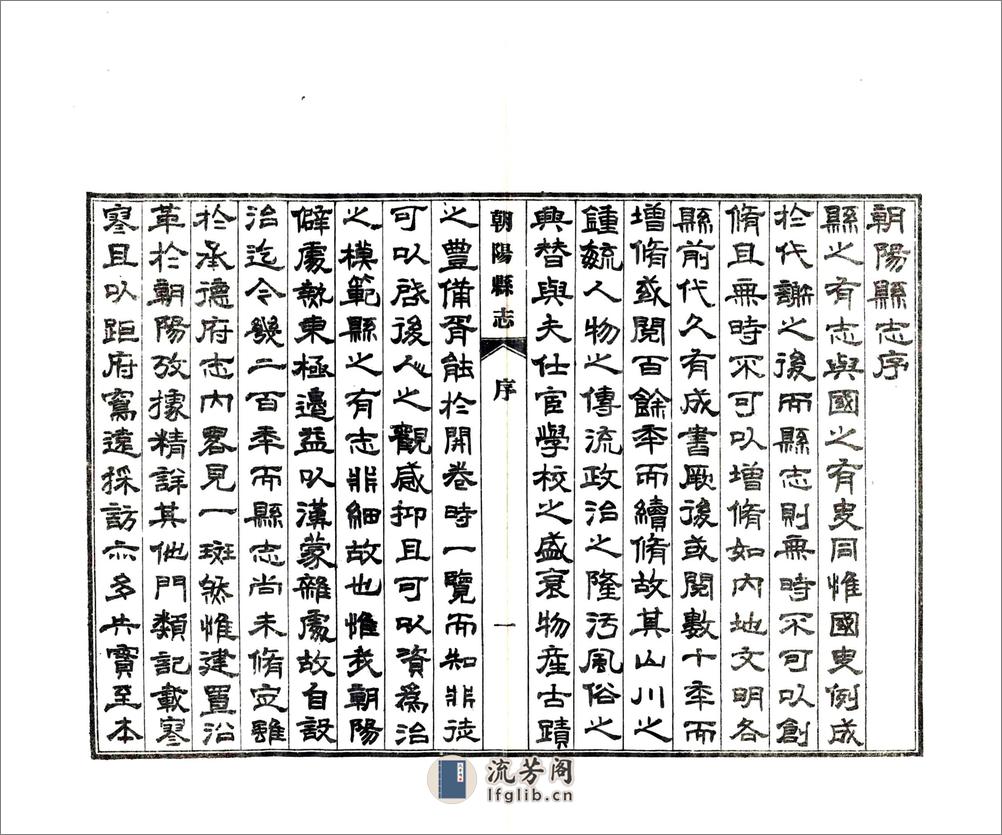 朝陽縣志序
縣之有志與國之有史同惟國史例成
於代謝之後而縣志則無時不可以創
脩且無時不可以增脩如內地文明各
縣前代久有成書厥後或閱數十年而
增脩或閱百餘年而續脩故其山川之
鍾毓人物之傳流政治之隆污風俗之
興替與夫仕宦學校之盛衰物産古蹟
朝陽縣志
序
一
之豐備胥能於開卷時一覽而知非徒
可以啓後人之觀感抑且可以資為治
之模範縣之有志非細故也惟我朝陽
僻處熱東極邊益以漢蒙雜處故自設
治迄今幾二百年而縣志尚未脩定雖
於承德府志內畧見一斑然惟建置沿
革於朝陽攷據精詳其他門類記載寥
寥且以距府窵遠採訪亦多失實至本
流芳阁
lfglib.cn